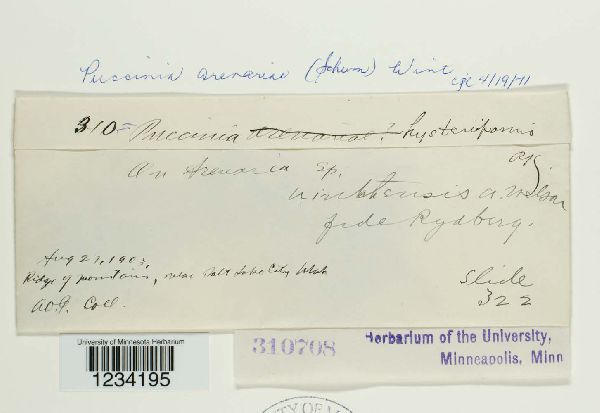 Puccinia arenariae (Schum) Wint
cfc 4/19/71
310= Puccinia arenariae? hysteriformis
PK
On Arenaria sp.
uintahensis A. Nelson
fide Rydberg.
Aug 21, 1903,
Ridge of mountains, near Salt Lake City, Utah
A.O.G. Coll.
Slide
322
310708
Herbarium of the University,
Minneapolis, Minn
University of Minnesota Herbarium
1234195